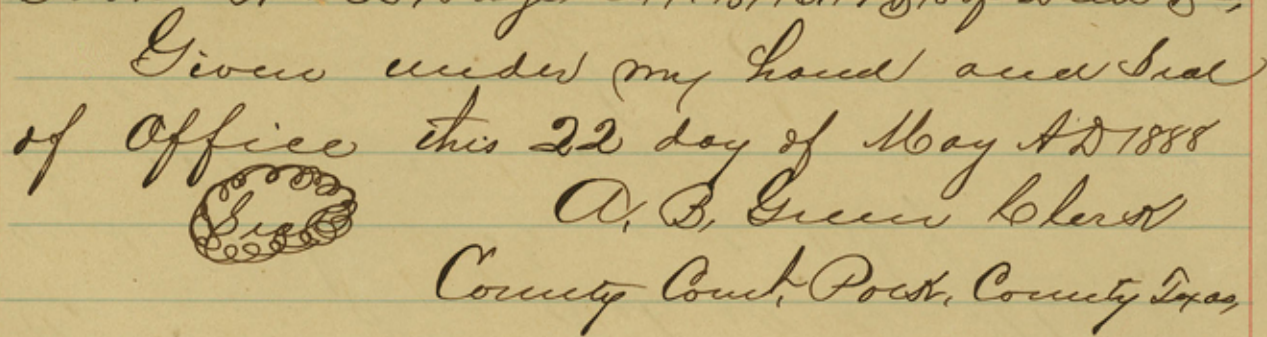 Given under my hand and Seal
of Office this 22 day of May AD 1888
Seal
A. B. Green Clerk
County Court, Polk, County Texas,